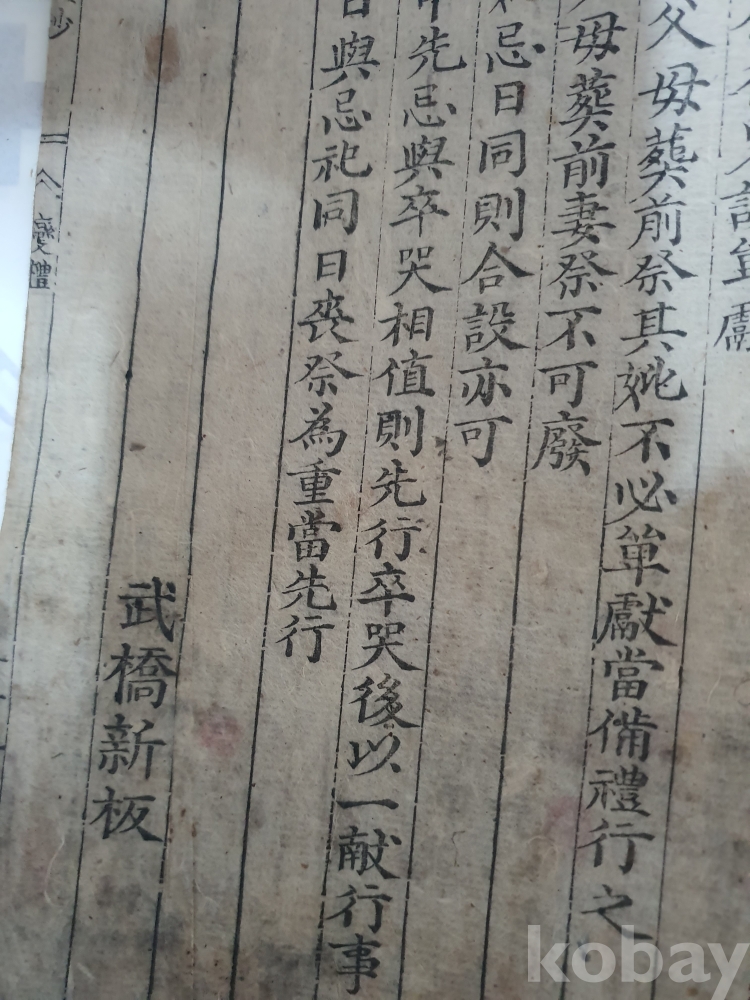 設單獻
父母葬前祭其妣不必單獻當備禮行之
母葬前妻祭不可廢
忌日同則合設亦可
先忌與卒哭相值則先行卒哭後以一献行事
日與忌祀同日喪祭為重當先行
武橋新板
變禮
kobay